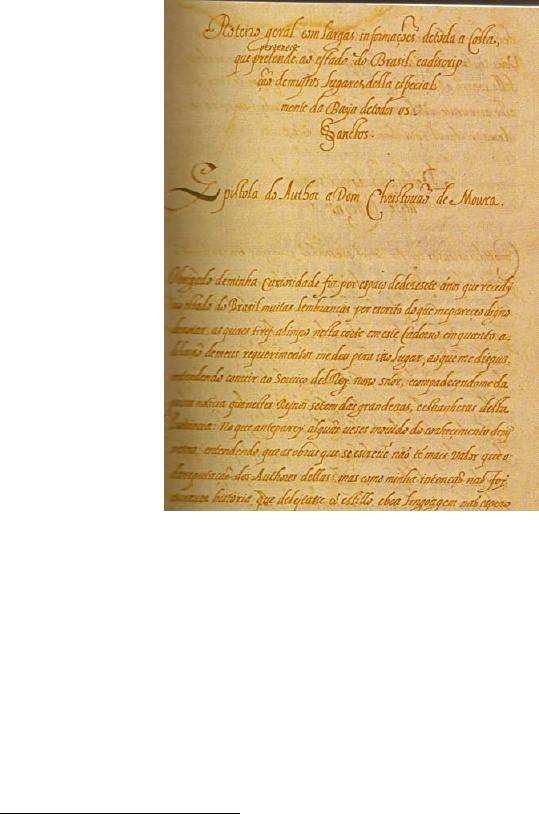 Roteiro geral com largas informações de toda a Costa,
pertence
que pretende ao estado do Brasil. eadiscrip
ção de muitos lugares della especial
mente da Baya detodos os
Sanctos.
Epistola do Author a Dom Christouão de Moura.
Obrigado deminha Curiosidade fiz por espaço dedezesete annos que recedy
no estado do Brasil muitas lembranças por escrito do que mepareceo digno
denotar, as quaes tirey alimpo nesta corte em este Caderno em quanto a
dilação demeus requerimentos me deu pera isso lugar, ao que me dispus.
entendendo conuir ao Seruiço del Rey nosso snõr, ecompadecendome da
pouca noticia que nestes Reinos setem das grandezas, eestranhezas desta
Prouincia: No que anteparey alguãs ueses mouido do conhecimento demj
mesmo, entendendo que as obras que se escreuẽ não tẽ mais valor que o
dareputação dos Authores dellas; mas como minha intenção não foj
escreuer historia, que deleitasse cõ estillo, eboa lingoagem não espero